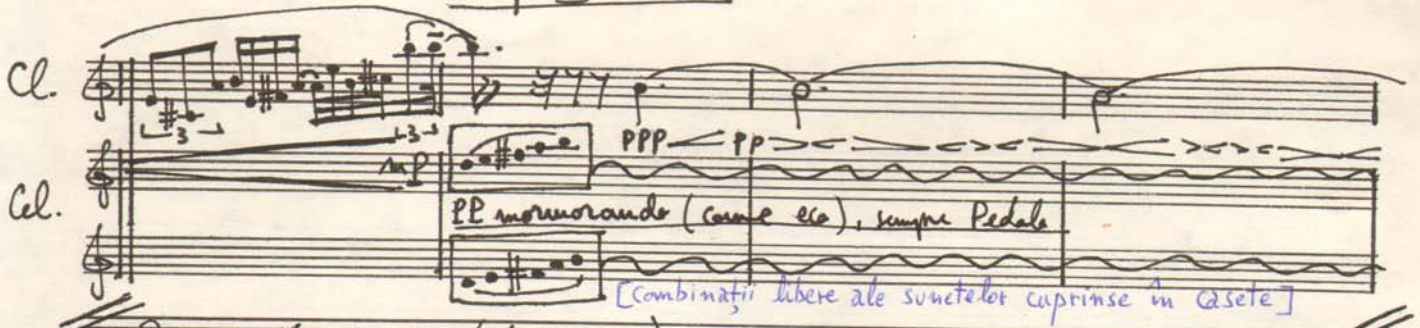 Cl.
3 3
mp
ppp pp
Cel.
PP mormorando (come eco), sempre Pedale
[Combinații libere ale sunetelor cuprinse în casete]